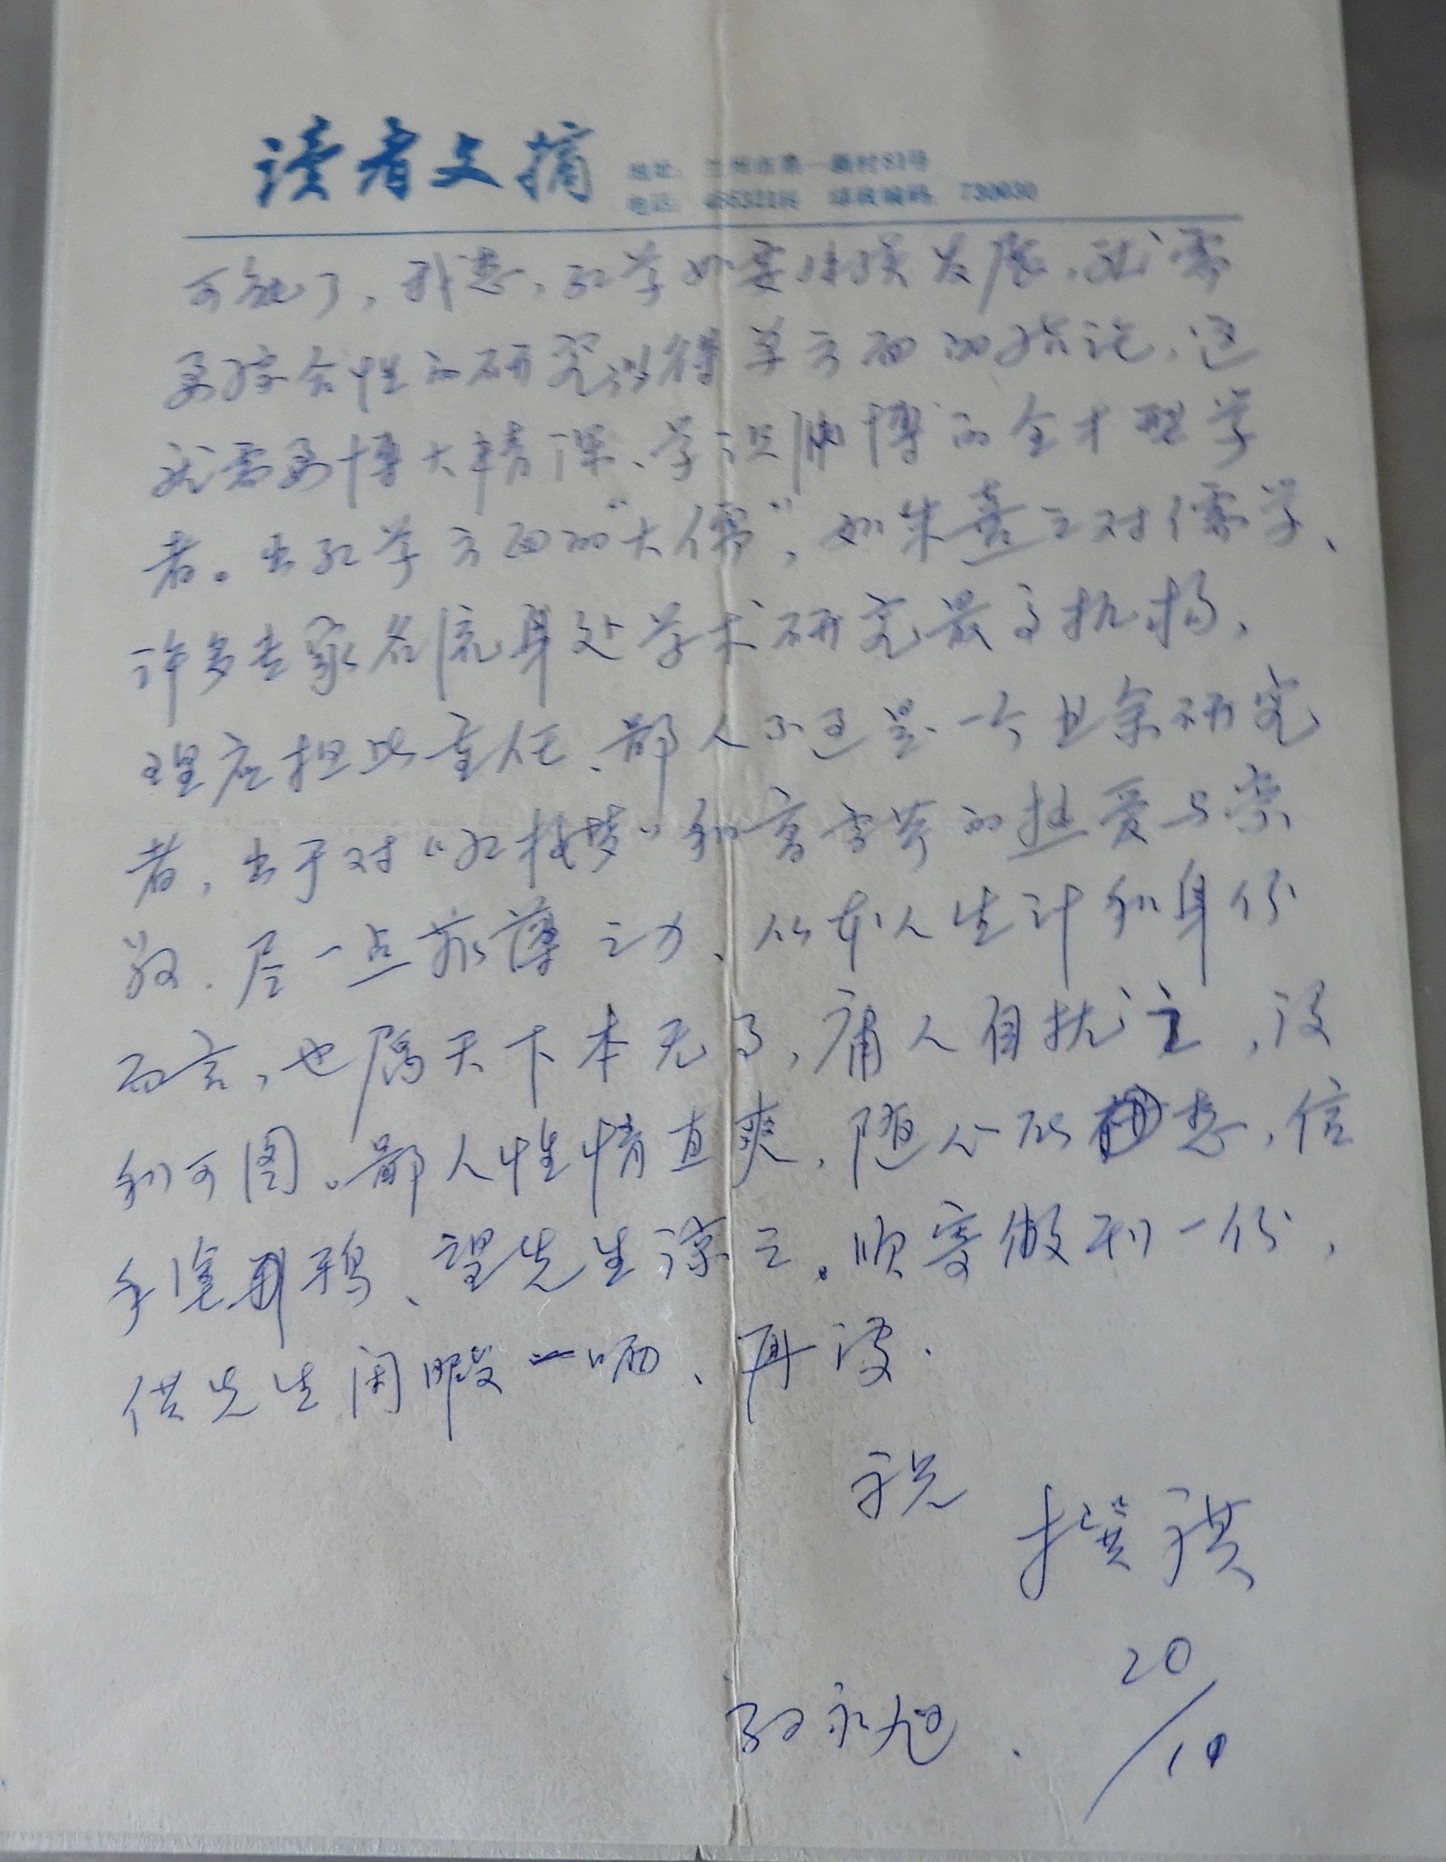 读者文摘
地址：兰州市第一新村81号
电话： 邮政编码：730030
可能了，我想，红学如要继续发展，就需
要综合性的研究以得单方面的结论，这
就需要博大精深、学识渊博的全才型学
者。出红学方面的“大儒”，如朱熹之对儒学、
许多专家名流身处学术研究最高机构，
理应担此重任、鄙人不过是一个业余研究
者，出于对“红楼梦”和曹雪芹的热爱与崇
敬．尽一点菲薄之力、从本人生计和身份
而言，也属天下本无事，庸人自扰之，没
利可图。鄙人性情直爽，随心所想，信
手涂鸦、望先生谅之。顺寄敝刊一份，
供先生闲暇一哂、再谈．
祝
撰祺
永旭．
20/10